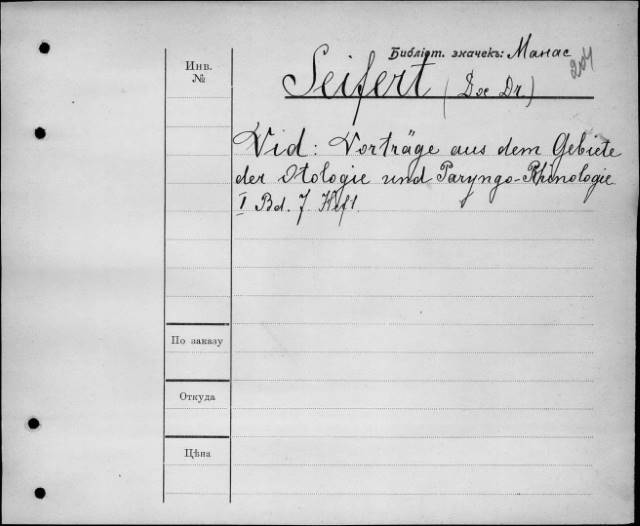 Библіот. значекъ: Манас
204
Инв.
№
Seifert (Doc Dr.)
Vid: Vorträge aus dem Gebiete
der Otologie und Paryngo-Rhinologie
I Bd. 7 Heft.
По заказу
Откуда
Цѣна